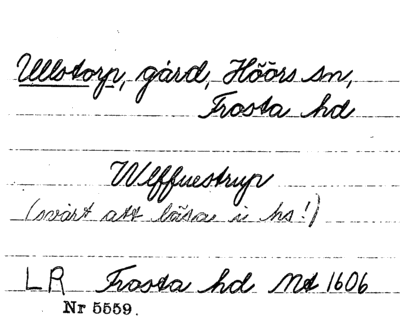 Ullstorp, gård, Höörs sn,
Frosta hd
Wlffuestrup
(svårt att läsa i hs!)
LR Frosta hd Mt 1606
Nr 5559.